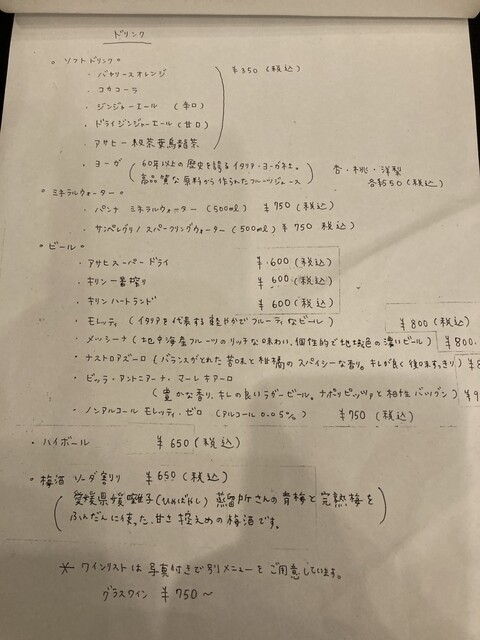 ドリンク
○ ソフトドリンク○
・ バヤリースオレンジ ¥350 (税込)
・ コカコーラ
・ ジンジャーエール (辛口)
・ ドライジンジャーエール (甘口)
・ アサヒー 級茶葉烏龍茶
・ ヨーガ (60年以上の歴史を誇るイタリア・ヨーガ社。 杏・桃・洋梨
高品質な原料から作られたフルーツジュース) 各¥550 (税込)
○ ミネラルウォーター○
・ パンナ ミネラルウォーター (500ml) ¥750 (税込)
・ サンペレグリノ スパークリングウォーター (500ml) ¥750 税込)
○ ビール○
・ アサヒスーパードライ ¥600 (税込)
・ キリン一番搾り ¥600 (税込)
・ キリンハートランド ¥600 (税込)
・ モレッティ (イタリアを代表する軽やかでフルーティなビール) ¥800 (税込)
・ メッシーナ (地中海産フルーツのリッチな味わい、個性的で地域色の濃いビール) ¥800.
・ ナストロアズーロ (バランスがとれた苦味と柑橘のスパイシーな香り。キレが良く後味すっきり)
・ ビッラ・アントニアーナ・マーレキアーロ
(豊かな香り、キレの良いラガービール。ナポリピッツァと相性バツグン) ¥9
・ ノンアルコール モレッティ・ゼロ (アルコール 0.05%) ¥750 (税込)
○ ハイボール ¥650 (税込)
○ 梅酒 ソーダ割り ¥650 (税込)
(愛媛県媛囃子(ひめばやし) 蒸留所さんの青梅と完熟梅を
ふんだんに使った、甘さ控えめの梅酒です。)
* ワインリストは写真付きで別メニューをご用意しています。
グラスワイン ¥750〜